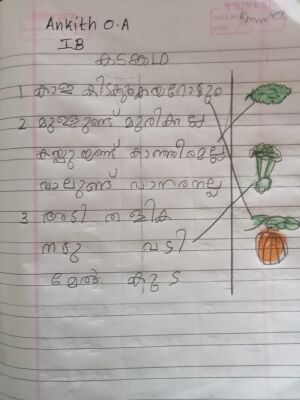 Ankith O.A
IB
കടങ്കഥ
1 കാള കിടക്കും കയറോടും
2 മുള്ളുണ്ട് മുരിക്കല്ല
കയ്പ്പുണ്ട് കാഞ്ഞിരമല്ല
വാലുണ്ട് വാനരനല്ല
3 അടി തളിക
നടു വടി
മേൽ കുട